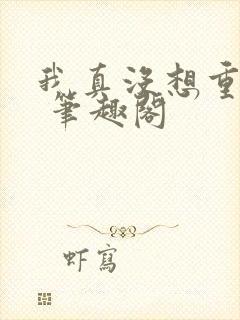 我真没想重
筆趣阁
虾寫